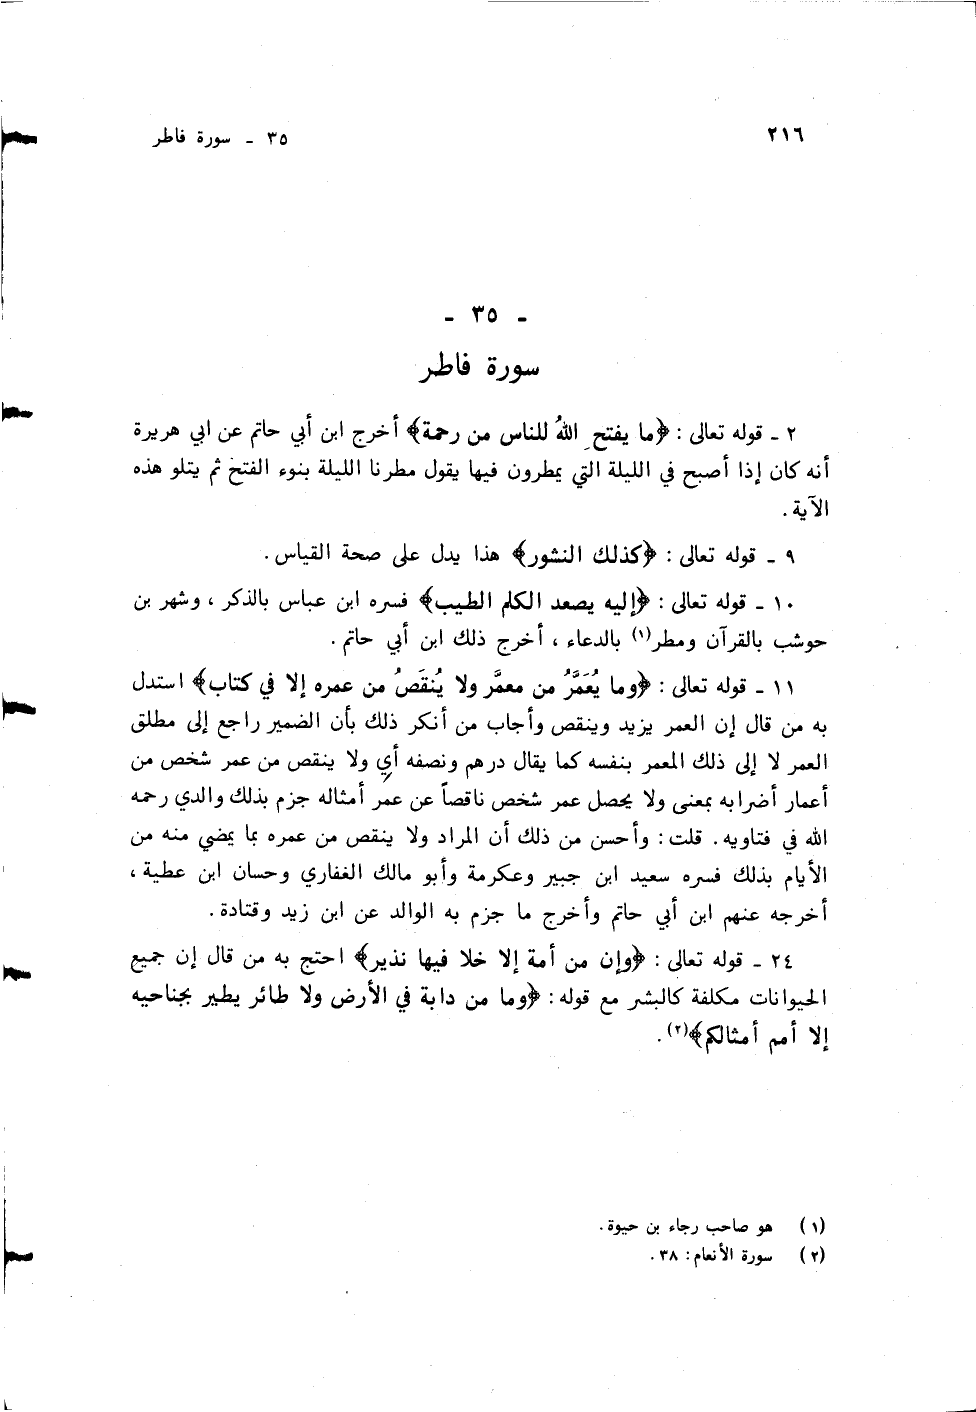 ٢١٦
٣٥ - سورة فاطر
- ٣٥ -
سورة فاطر
٢ - قوله تعالى : ﴿ما يفتحِ اللهُ للناس من رحمة﴾ أخرج ابن أبي حاتم عن ابي هريرة
أنه كان إذا أصبح في الليلة التي يمطرون فيها يقول مطرنا الليلة بنوء الفتح ثم يتلو هذه
الآية .
٩ - قوله تعالى : ﴿كذلك النشور﴾ هذا يدل على صحة القياس .
١٠ - قوله تعالى : ﴿إليه يصعد الكلم الطيب﴾ فسره ابن عباس بالذكر ، وشهر بن
حوشب بالقرآن ومطر(١) بالدعاء ، أخرج ذلك ابن أبي حاتم .
١١ - قوله تعالى : ﴿وما يُعَمَّرُ من معمَّر ولا يُنقَصُ من عمره إلا في كتاب﴾ استدل
به من قال إن العمر يزيد وينقص وأجاب من أنكر ذلك بأن الضمير راجع إلى مطلق
العمر لا إلى ذلك المعمر بنفسه كما يقال درهم ونصفه أي ولا ينقص من عمر شخص من
أعمار أضرابه بمعنى ولا يحصل عمر شخص ناقصاً عن عمر أمثاله جزم بذلك والدي رحمه
الله في فتاويه . قلت : وأحسن من ذلك أن المراد ولا ينقص من عمره بما يمضي منه من
الأيام بذلك فسره سعيد ابن جبير وعكرمة وأبو مالك الغفاري وحسان ابن عطية ،
أخرجه عنهم ابن أبي حاتم وأخرج ما جزم به الوالد عن ابن زيد وقتادة .
٢٤ - قوله تعالى : ﴿وإن من أمة إلا خلا فيها نذير﴾ احتج به من قال إن جميع
الحيوانات مكلفة كالبشر مع قوله : ﴿وما من دابة في الأرض ولا طائر يطير بجناحيه
إلا أمم أمثالكم﴾(٢) .
(١) هو صاحب رجاء بن حيوة .
(٢) سورة الأنعام : ٣٨ .